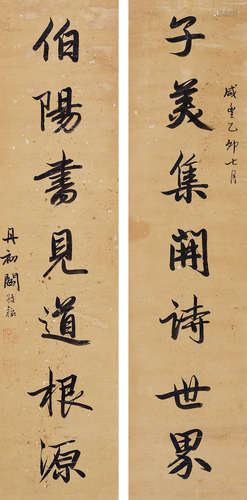 子美集開詩世界
咸豐乙卯七月
伯陽書見道根源
丹初閻敬銘